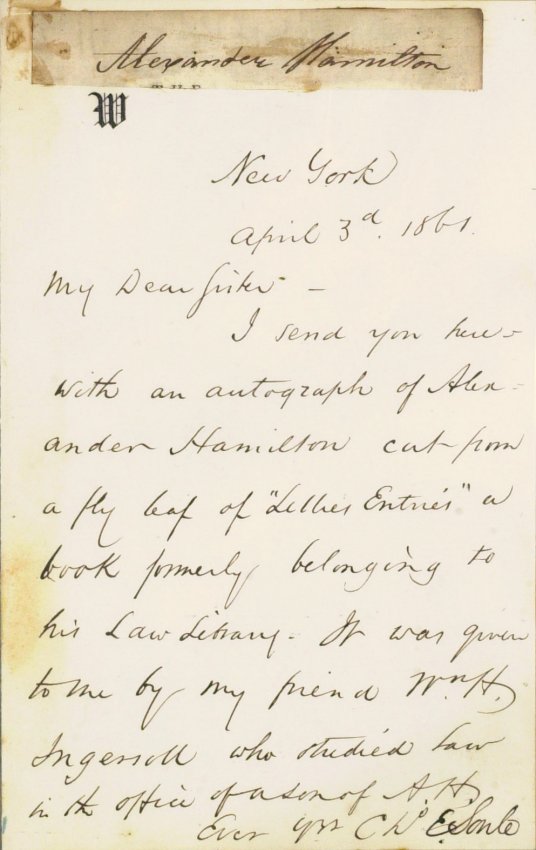 Alexander Hamilton
W
THE
New York
April 3d. 1861.
My Dear Sister –
I send you here=
with an autograph of Alex=
ander Hamilton cut from
a fly leaf of "Lillies Entries" a
book formerly belonging to
his Law Library. It was given
to me by my friend Wm H.
Ingersoll who studied Law
in the office of a son of A.H.
Ever Yrs Chs E. Soule